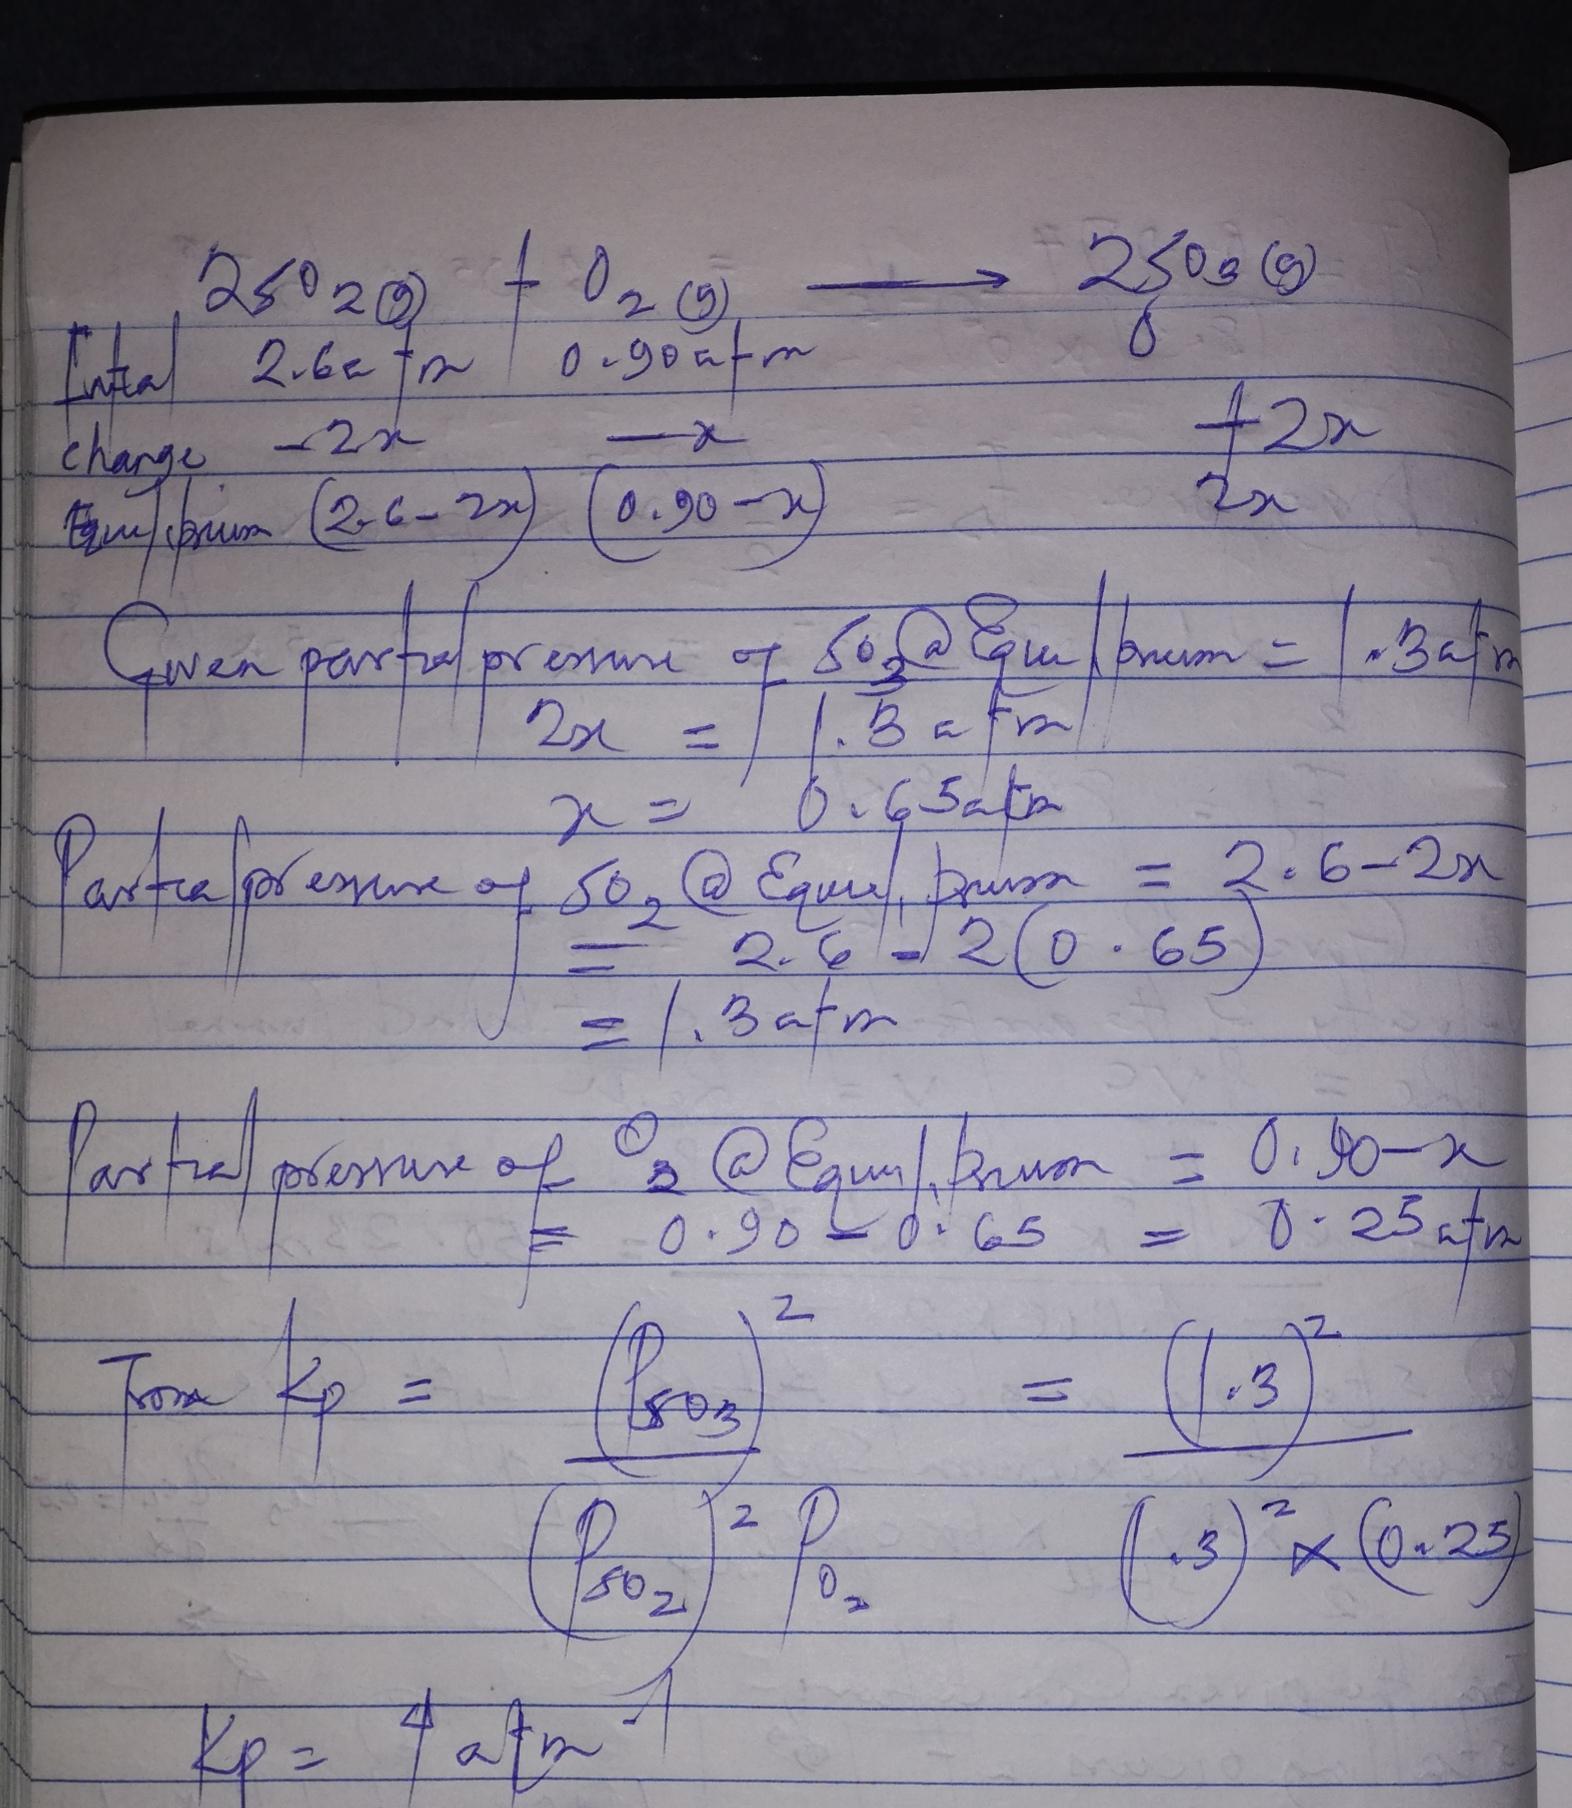 2SO2(g) + O2(g) → 2SO3(g)
Intial 2.6atm 0.90atm 0
change -2x -x +2x
Equilibrium (2.6-2x) (0.90-x) 2x
Given partial pressure of SO3 @ Equilibrium = 1.3atm
2x = 1.3atm
x = 0.65atm
Partial pressure of SO2 @ Equilibrium = 2.6-2x
= 2.6 - 2(0.65)
= 1.3atm
Partial pressure of O2 @ Equilibrium = 0.90-x
= 0.90-0.65 = 0.25atm
From Kp = (PSO3)² / (PSO2)² PO2 = (1.3)² / (1.3)² × (0.25)
Kp = 4 atm⁻¹